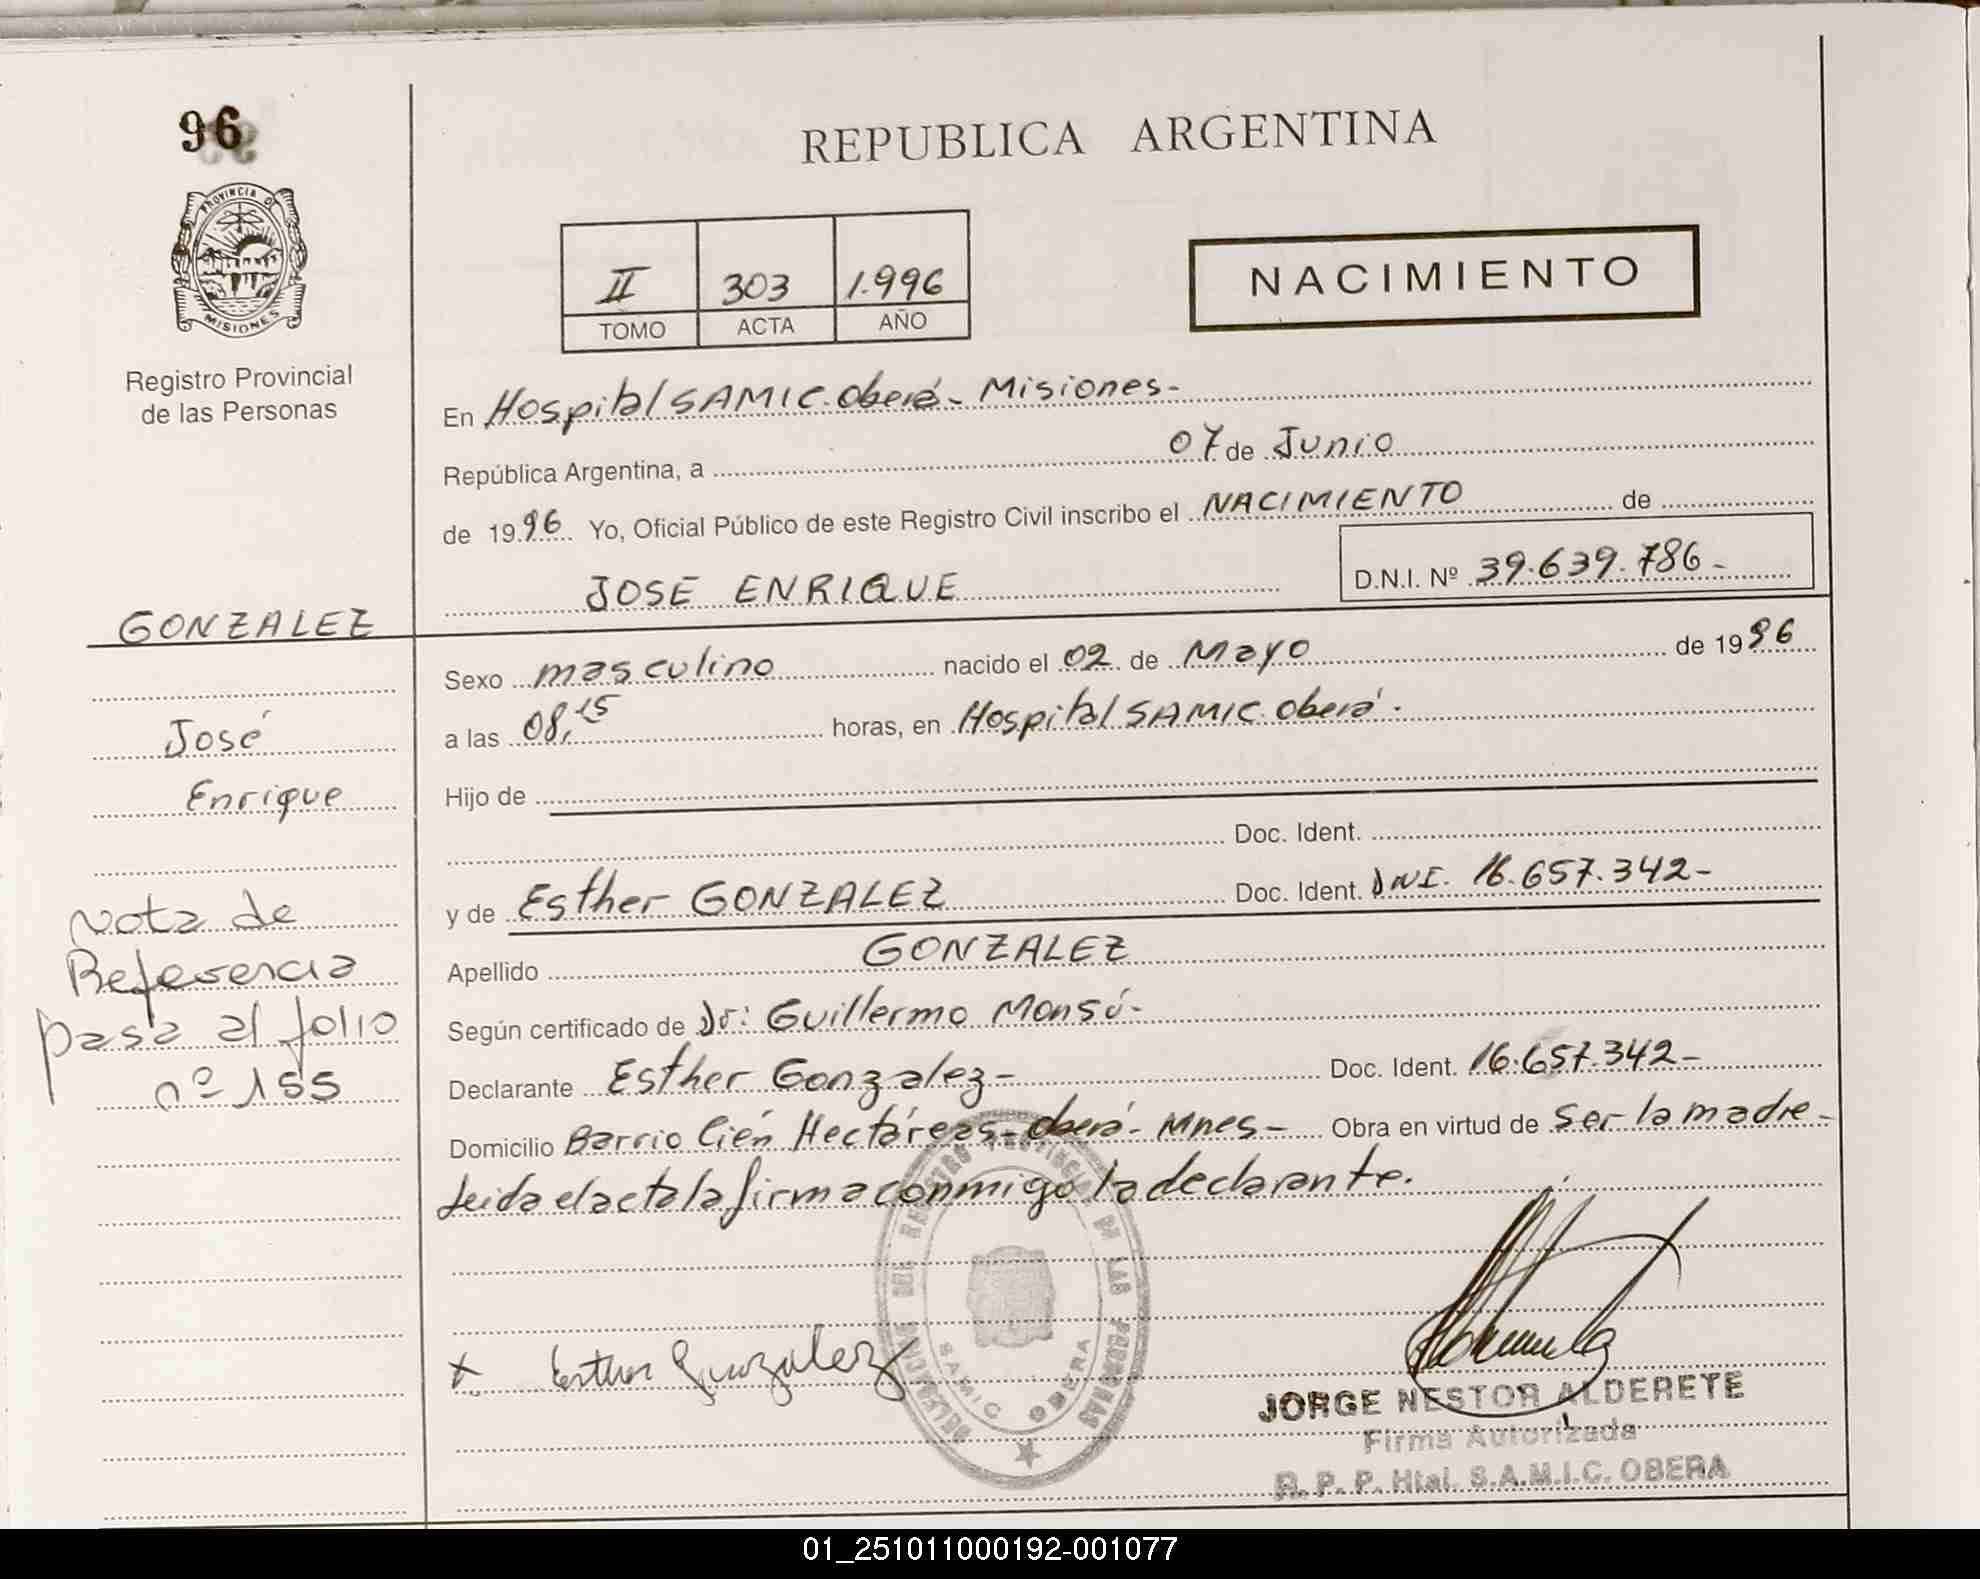 96
PROVINCIA DE
MISIONES
Registro Provincial
de las Personas
REPUBLICA ARGENTINA
II 303 1.996
TOMO ACTA AÑO
NACIMIENTO
En Hospital SAMIC. Oberá - Misiones -
República Argentina, a 07 de Junio
de 1996 Yo, Oficial Público de este Registro Civil inscribo el NACIMIENTO de
JOSE ENRIQUE D.N.I. Nº 39.639.786 -
GONZALEZ
José
Enrique
Nota de
Referencia
pasa al folio
nº 155
Sexo masculino nacido el 02 de Mayo de 1996
a las 08,15 horas, en Hospital SAMIC. Oberá.
Hijo de
Doc. Ident.
y de Esther GONZALEZ Doc. Ident. DNI. 16.657.342 -
Apellido GONZALEZ
Según certificado de Dr: Guillermo Monsó -
Declarante Esther Gonzalez - Doc. Ident. 16.657.342 -
Domicilio Barrio Cién Hectáreas - Oberá - Mnes - Obra en virtud de ser la madre -
Leida el acta la firma conmigo la declarante.
x Esther Gonzalez
DELEGACION DEL REGISTRO PROVINCIAL DE LAS PERSONAS
SAMIC OBERA
JORGE NESTOR ALDERETE
Firma Autorizada
R. P. P. Htal. S.A.M.I.C. OBERA
01_251011000192-001077